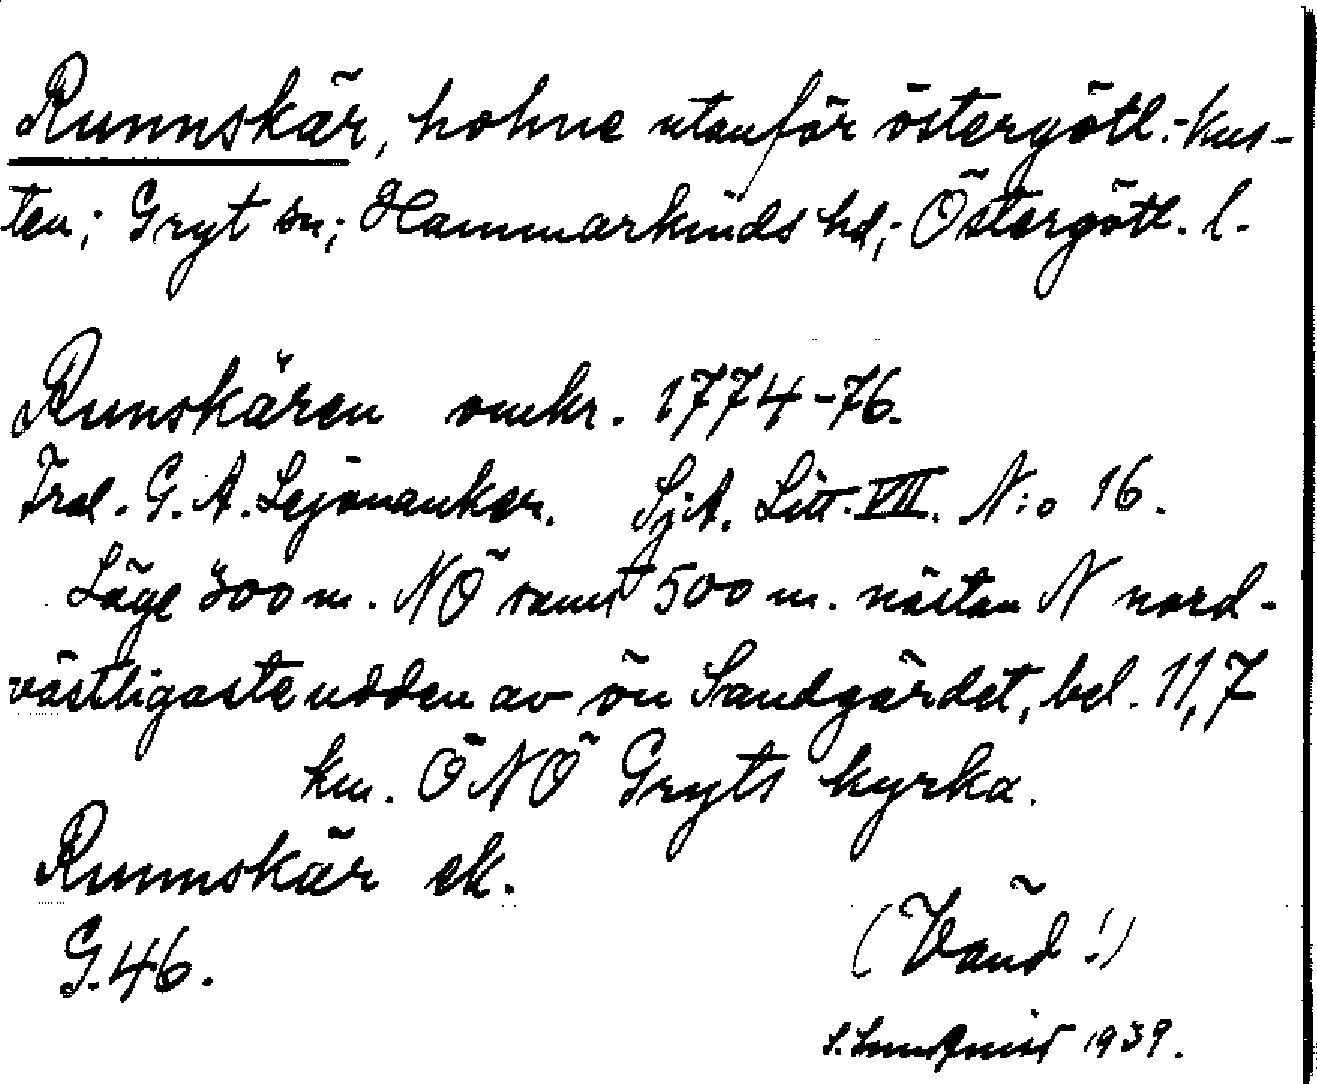 Runnskär, holme utanför östergötl.-kus-
ten; Gryt sn; Hammarkinds hd; Östergötl. l.
Runskären omkr. 1774-76.
G. A. Lejonanker. Sj.A. Litt. VII. N:o 16.
Läge 300 m. NÖ samt 500 m. nästan N nord-
västligaste udden av ön Sandgärdet, bel. 11,7
km. ÖNÖ Gryts kyrka.
Runnskär ek.
G.46.
(Vänd!)
1939.